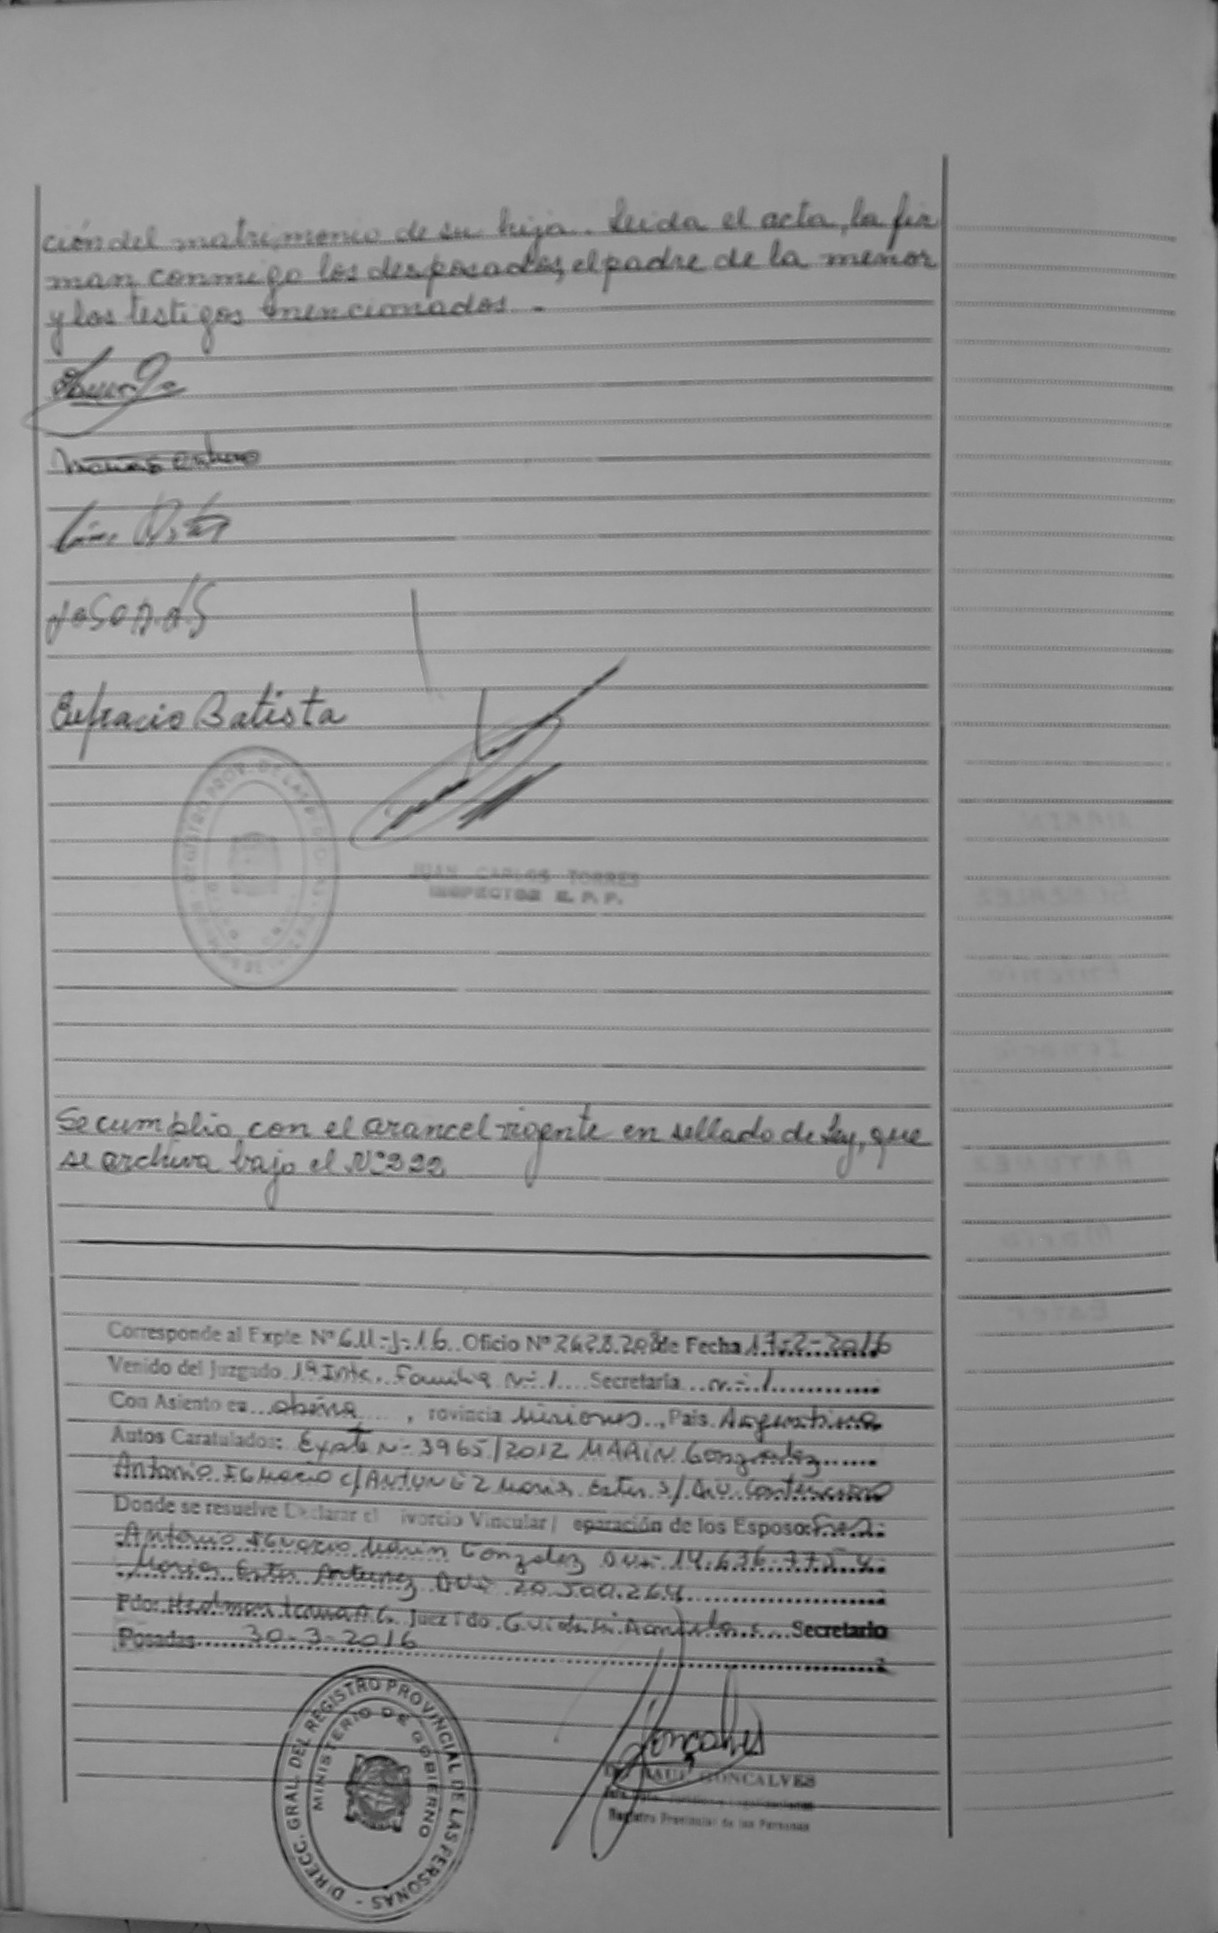 ción del matrimonio de su hija. Leida el acta, la fir
man conmigo los desposados, el padre de la menor
y los testigos mencionados. -
Eufracio Batista
JUAN CARLOS TORRES
INSPECTOR R. P. P.
Se cumplio con el arancel vigente en sellado de Ley, que
se archiva bajo el Nº 322
Corresponde al Expte. Nº 611-J-16 Oficio Nº de Fecha 17-2-2016
Venido del Juzgado 1ª Inta. Familia Nº 1 Secretaría Nº 1
Con Asiento en oberá, rovincia Misiones, País. Argentina
Autos Caratulados: Expte Nº 3965/2012 MARIN Gonzalez
Antonio Ignacio c/ANTUNEZ Maria Ester s/ Div. Contencioso
Donde se resuelve Declarar el ivorcio Vincular/ eparación de los Esposos:
Antonio Ignacio Marin Gonzalez DNI- 14.636.775 y
Maria Ester Antunez DNI- 20.500.264
Fdo: Juez Fdo. Secretario
Posadas 30-3-2016
DIRECC. GRAL. DEL REGISTRO PROVINCIAL DE LAS PERSONAS -
MINISTERIO DE GOBIERNO
Goncalves
RAUL GONCALVES
Registro Provincial de las Personas